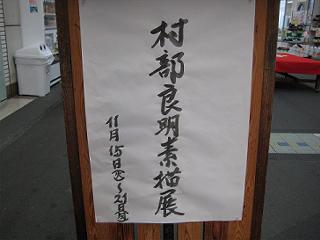 村部良明素描展
11月15日㊋〜21日㊊